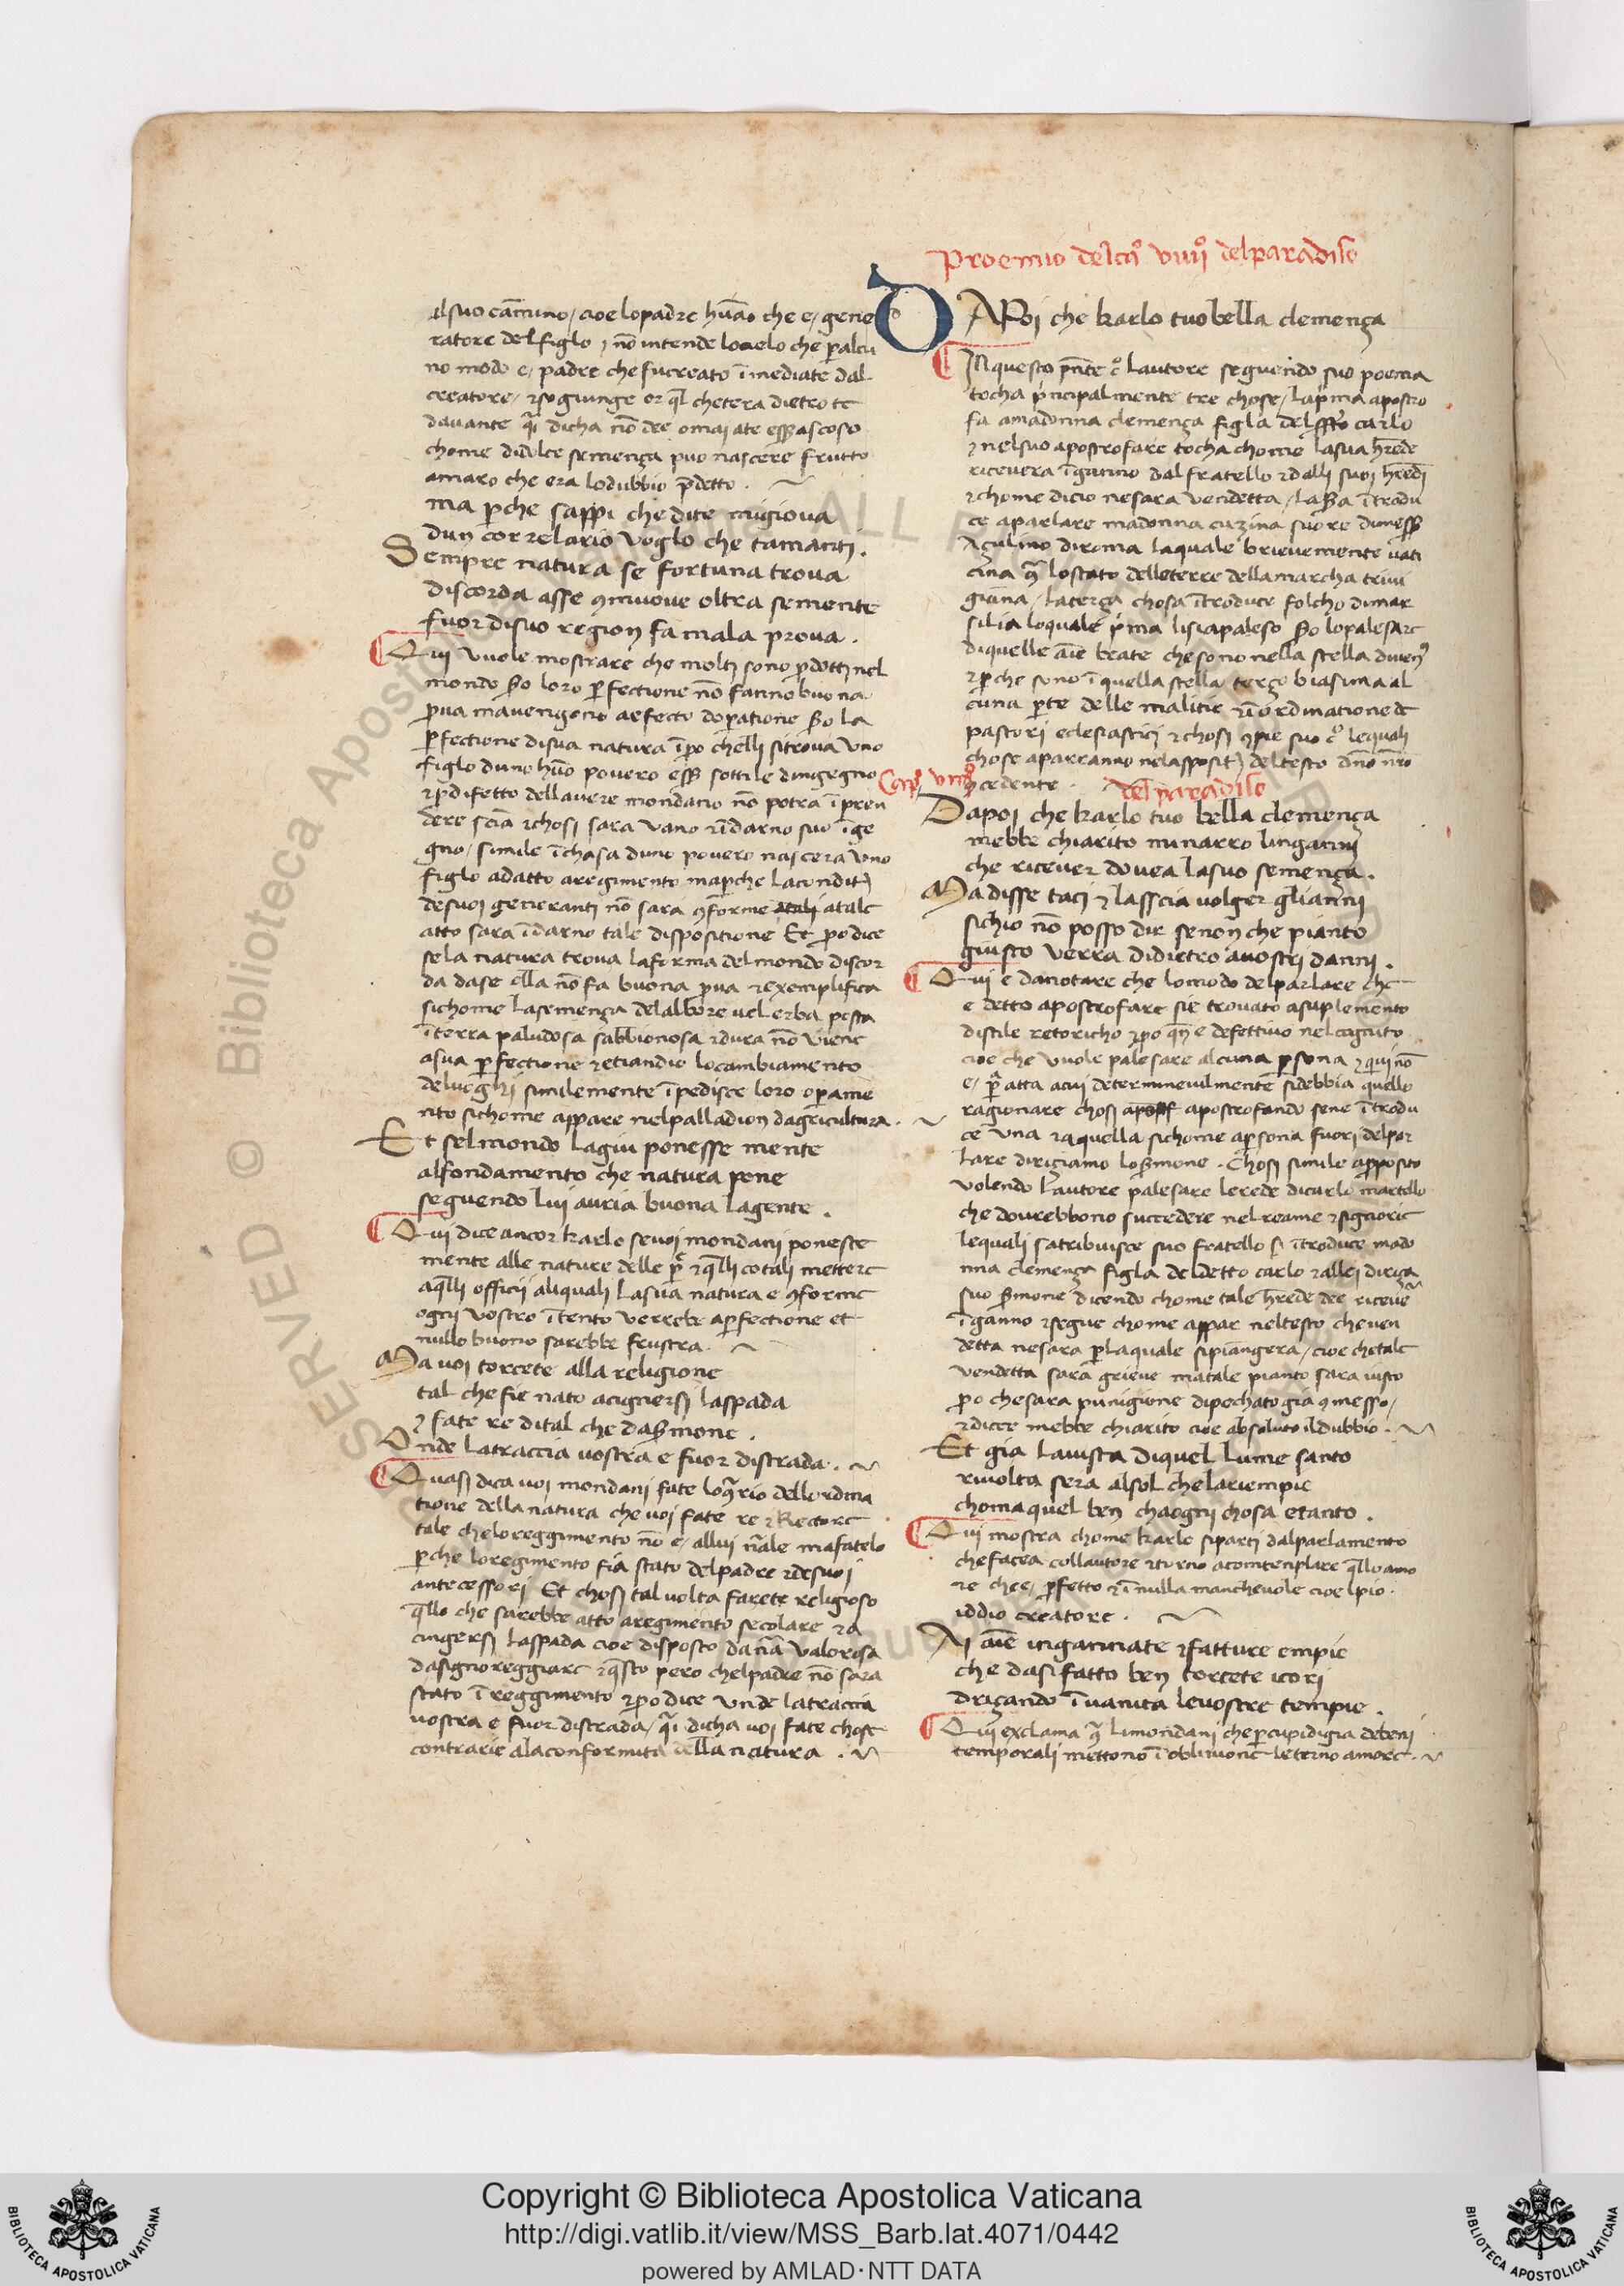 alsuo cam̄ino / cioe lo padre hum̄ao che e / gene
ratore del figlo / nō intende lo cielo che p̱ alcu
no modo e / padre che fu creato ī mediate dal
creatore / ⁊ sogiunge or q̄l chetera dietro te
davante q̄i dicha nō dee omai ate eſſ̄ ascoso
chome di dolce semença puo nascere frutto
amaro che era lo dubbio p̄detto .
ma p̱che sappi che dite mi giova
dun correlario voglo che tamanti .
Sempre natura se fortuna trova
discorda asse ꝯmuove oltra semente
fuor di suo region fa mala prova .
Qui vuole mostrare che molti sono p̱dotti nel
mondo ẞo loro p̱fectione nō fanno buona
p̱va ma vengono aefecto dop̱atione ẞo la
p̱fectione di sua natura īp̱o chelli si trova uno
figlo duno hūo povero eſſ̄ sottile dingegno
⁊ p̱ difetto dellavere mondano nō potra īpren
dere scīa ⁊ chosi sara vano ⁊ īdarno suo īge
gno / simile ī chasa duno povero nascera uno
figlo adatto aregimento ma p̱che la condit̄
de suoi generanti nō sara ꝯforme atali atale
atto sara īdarno tale dispositione Et p̱o dice
se la natura trova la forma del mondo discor
da da se ella nō fa buona p̱va ⁊ exemplifica
sichome la semença delalbore vel erba posta
ī terra paludosa sabbionosa ⁊ dura nō viene
a sua p̱fectione ⁊ etiandio lo cambiamento
de luoghi similemente īpedisce loro op̱ame
nto sichome appare nel palladion dagricultura .
Et sel mondo lagiu ponesse mente
al fondamento che natura pone
seguendo lui auria buona la gente .
Qui dice ancor karlo se voi mondani poneste
mente alle nature delle p̱e ⁊ q̄lli cotali mettere
a q̄lli officii aliquali la sua natura e ꝯforme
ogni vostro ītento verrebe ap̱fectione et
nullo buono sarebbe frustra .
Ma voi torcete alla religione
tal che fie nato acignersi la spada
⁊ fate re dital che da ẞmone .
Onde la traccia vostra e fuor di strada .
Quasi dica voi mondani fate lo q̄rio dellordina
tione della natura che voi fate re ⁊ Rectore
tale che lo reggimento nō e / allui n̄ale ma fatelo
p̱che lo regimento fia stato del padre ⁊ de suoi
antecessori Et chosi tal volta farete religioso
q̄llo che sarebbe atto aregimento secolare ⁊ a
cingersi la spada cioe disposto da nā valorosa
dasignoreggiare ⁊ q̄sto pero chel padre nō sara
stato ī reggimento ⁊ p̱o dice unde la traccia
vostra e fuor di strada / q̄i dicha voi fate chose
contrarie ala conformita della natura .
Proemio del cā° viiij° del paradiso
DAPoi che karlo tuo bella clemença
IN questo p̄nte c° lautore seguendo suo poema
tocha p̱ncipalmente tre chose / la p̱ma apostro
fa amadonna clemença figla del ſſto carlo
⁊ nel suo apostrofare tocha chome la sua hrede
ricevera īganno dal fratello ⁊ dalli suoi hredi
⁊ chome dicio ne sara vendetta / la ẞa ītrodu
ce aparlare madonna cuzina suore dimeſſ̄
Açulino diroma laquale brievemente vati
cina q̄ lo stato delle terre della marcha trivi
giana / la terça chosa ītroduce folcho dimar
silia loquale p̱ma lisi apaleso ẞo lo palesare
di quelle aīe beate che sono nella stella di ven̄
⁊ p̱che sono ī quella stella terço biasima al
cuna p̱te delle malitie ⁊ īordinatione de
pastori eclesiastici ⁊ chosi ꝯpie suo c° lequali
chose aparranno nelasposit̄ del testo dn̄o nr̄o
ꝯcedente .
Cap° viiij°
del paradiso
Dapoi che karlo tuo bella clemença
mebbe chiarito mi narro linganni
che ricever dovea la suo semença .
Ma disse taci ⁊ lasscia volger gli anni
sichio nō posso dir se non che pianto
giusto verra didietro avostri danni .
Qui e da notare che lo modo del parlare che
e detto apostrofare sie trovato asuplemento
di stile retoricho ⁊ p̱o qn̄ e defettivo nel cognito
cioe che vuole palesare alcuna p̱sona ⁊ qui nō
e / p̱a atta acui determinevilmente si debbia quello
ragionare chosi apostf apostrofando sene ītrodu
ce una ⁊ aquella sichome ap̱sona fuori del par
lare diriciamo lo ẞmone . Chosi simile ap̱posito
volendo lautore palesare lerede di carlo martello
che dovrebbono succedere nel reame ⁊ signorie
lequali satribuisce suo fratello si ītroduce mado
nna clemença figla del detto carlo ⁊ allei diriça
suo ẞmone dicendo chome tale hrede dee riceve
īganno ⁊ segue chome appar nel testo che ven
detta ne sara p̱ laquale si piangera / cioe che tale
vendetta sara grieve ma tale pianto sara iusto
p̱o che sara punigione di pechato gia ꝯmesso /
⁊ dicee mebbe chiarito cioe absoluto il dubbio .
Et gia la vista di quel lume santo
rivolta sera al sol che la riempie
chom a quel ben cha ogni chosa e tanto .
Qui mostra chome karlo si parti dal parlamento
che facea collautore ⁊ torno a comtemplare q̄llo amo
re che e / p̱fetto ⁊ ī nulla manchevole cioe lpio .
iddio creatore .
Ai aīe ingannate ⁊ fatture empie
che da si fatto ben torcete i cori
driçando ī vanita le vostre tempie .
Qui exclama q̄ li mondani che p̱ cupidigia de beni
temporali mettono ī oblivione leterno amore .
Copyright © Biblioteca Apostolica Vaticana
http://digi.vatlib.it/view/MSS_Barb.lat.4071/0442
powered by AMLAD·NTT DATA
BIBLIOTECA APOSTOLICA VATICANA
BIBLIOTECA APOSTOLICA VATICANA